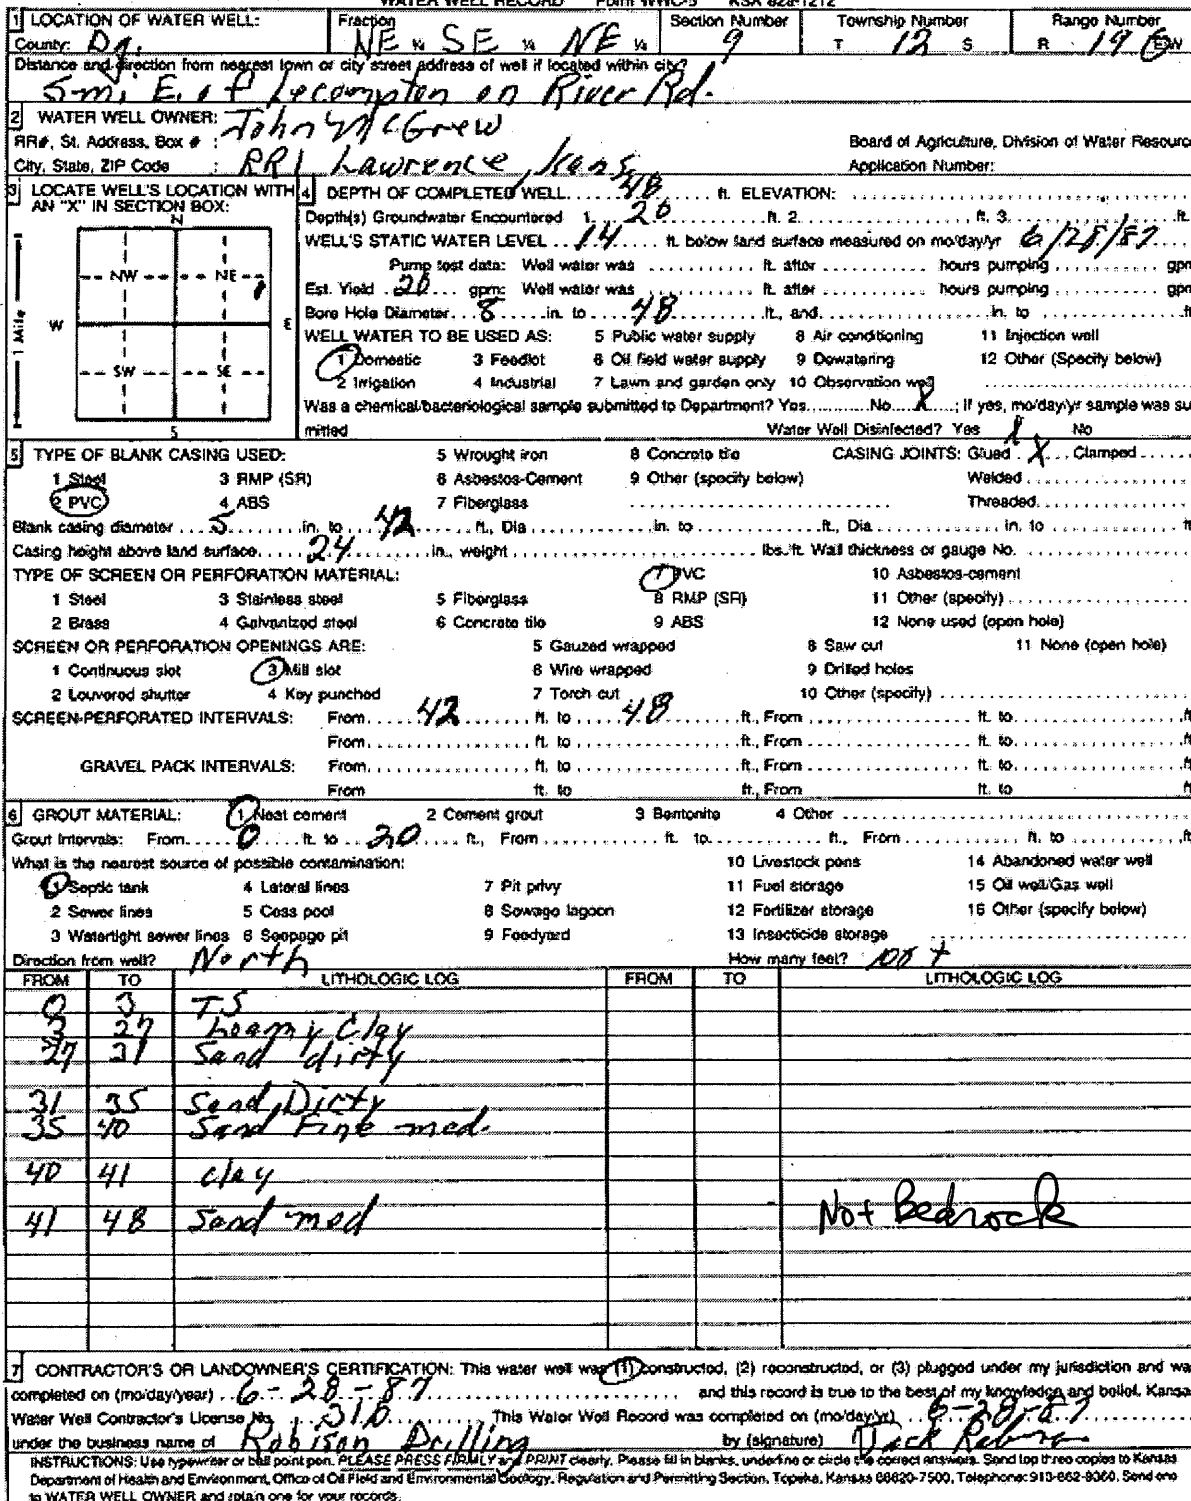 WATER WELL RECORD Form WWC-5 KSA 82a-1212
1 LOCATION OF WATER WELL: Fraction Section Number Township Number Range Number
County: Dg. NE ¼ SE ¼ NE ¼ 9 T 12 S R 19 E/W
Distance and direction from nearest town or city street address of well if located within city?
5 mi E. of Lecompton on River Rd.
2 WATER WELL OWNER: John McGrew
RR#, St. Address, Box # : Board of Agriculture, Division of Water Resourc
City, State, ZIP Code : RR1 Lawrence, Kans Application Number:
3 LOCATE WELL'S LOCATION WITH AN "X" IN SECTION BOX:
N
NW NE
W E
SW SE
S
1 Mile
4 DEPTH OF COMPLETED WELL 48 ft. ELEVATION:
Depth(s) Groundwater Encountered 1. 20 ft. 2. ft. 3. ft.
WELL'S STATIC WATER LEVEL 14 ft. below land surface measured on mo/day/yr 6/28/87
Pump test data: Well water was ft. after hours pumping gpm
Est. Yield 20 gpm: Well water was ft. after hours pumping gpm
Bore Hole Diameter 8 in. to 48 ft., and in. to ft
WELL WATER TO BE USED AS: 5 Public water supply 8 Air conditioning 11 Injection well
1 Domestic 3 Feedlot 6 Oil field water supply 9 Dewatering 12 Other (Specify below)
2 Irrigation 4 Industrial 7 Lawn and garden only 10 Observation well
Was a chemical/bacteriological sample submitted to Department? Yes No X ; If yes, mo/day/yr sample was su
mitted Water Well Disinfected? Yes X No
5 TYPE OF BLANK CASING USED: 5 Wrought iron 8 Concrete tile CASING JOINTS: Glued X Clamped
1 Steel 3 RMP (SR) 6 Asbestos-Cement 9 Other (specify below) Welded
2 PVC 4 ABS 7 Fiberglass Threaded
Blank casing diameter 5 in. to 42 ft., Dia in. to ft., Dia in. to ft
Casing height above land surface 24 in., weight lbs./ft. Wall thickness or gauge No.
TYPE OF SCREEN OR PERFORATION MATERIAL: 7 PVC 10 Asbestos-cement
1 Steel 3 Stainless steel 5 Fiberglass 8 RMP (SR) 11 Other (specify)
2 Brass 4 Galvanized steel 6 Concrete tile 9 ABS 12 None used (open hole)
SCREEN OR PERFORATION OPENINGS ARE: 5 Gauzed wrapped 8 Saw cut 11 None (open hole)
1 Continuous slot 3 Mill slot 6 Wire wrapped 9 Drilled holes
2 Louvered shutter 4 Key punched 7 Torch cut 10 Other (specify)
SCREEN-PERFORATED INTERVALS: From 42 ft. to 48 ft., From ft. to ft
From ft. to ft., From ft. to ft
GRAVEL PACK INTERVALS: From ft. to ft., From ft. to ft
From ft. to ft., From ft. to ft
6 GROUT MATERIAL: 1 Neat cement 2 Cement grout 3 Bentonite 4 Other
Grout Intervals: From 0 ft. to 20 ft., From ft. to ft., From ft. to ft
What is the nearest source of possible contamination: 10 Livestock pens 14 Abandoned water well
1 Septic tank 4 Lateral lines 7 Pit privy 11 Fuel storage 15 Oil well/Gas well
2 Sewer lines 5 Cess pool 8 Sewage lagoon 12 Fertilizer storage 16 Other (specify below)
3 Watertight sewer lines 6 Seepage pit 9 Feedyard 13 Insecticide storage
Direction from well? North How many feet?
FROM TO LITHOLOGIC LOG FROM TO LITHOLOGIC LOG
0 3 TS
3 27 Loamy Clay
27 31 Sand dirty
31 35 Sand, Dirty
35 40 Sand Fine med.
40 41 clay
41 48 Sand med Not Bedrock
7 CONTRACTOR'S OR LANDOWNER'S CERTIFICATION: This water well was (1) constructed, (2) reconstructed, or (3) plugged under my jurisdiction and wa
completed on (mo/day/year) 6-28-87 and this record is true to the best of my knowledge and belief. Kansa
Water Well Contractor's License No. 310 This Water Well Record was completed on (mo/day/yr) 6-28-87
under the business name of Robison Drilling by (signature) Jack Robison
INSTRUCTIONS: Use typewriter or ball point pen. PLEASE PRESS FIRMLY and PRINT clearly. Please fill in blanks, underline or circle the correct answers. Send top three copies to Kansas
Department of Health and Environment, Office of Oil Field and Environmental Geology, Regulation and Permitting Section, Topeka, Kansas 66620-7500, Telephone: 913-862-9360. Send one
to WATER WELL OWNER and retain one for your records.